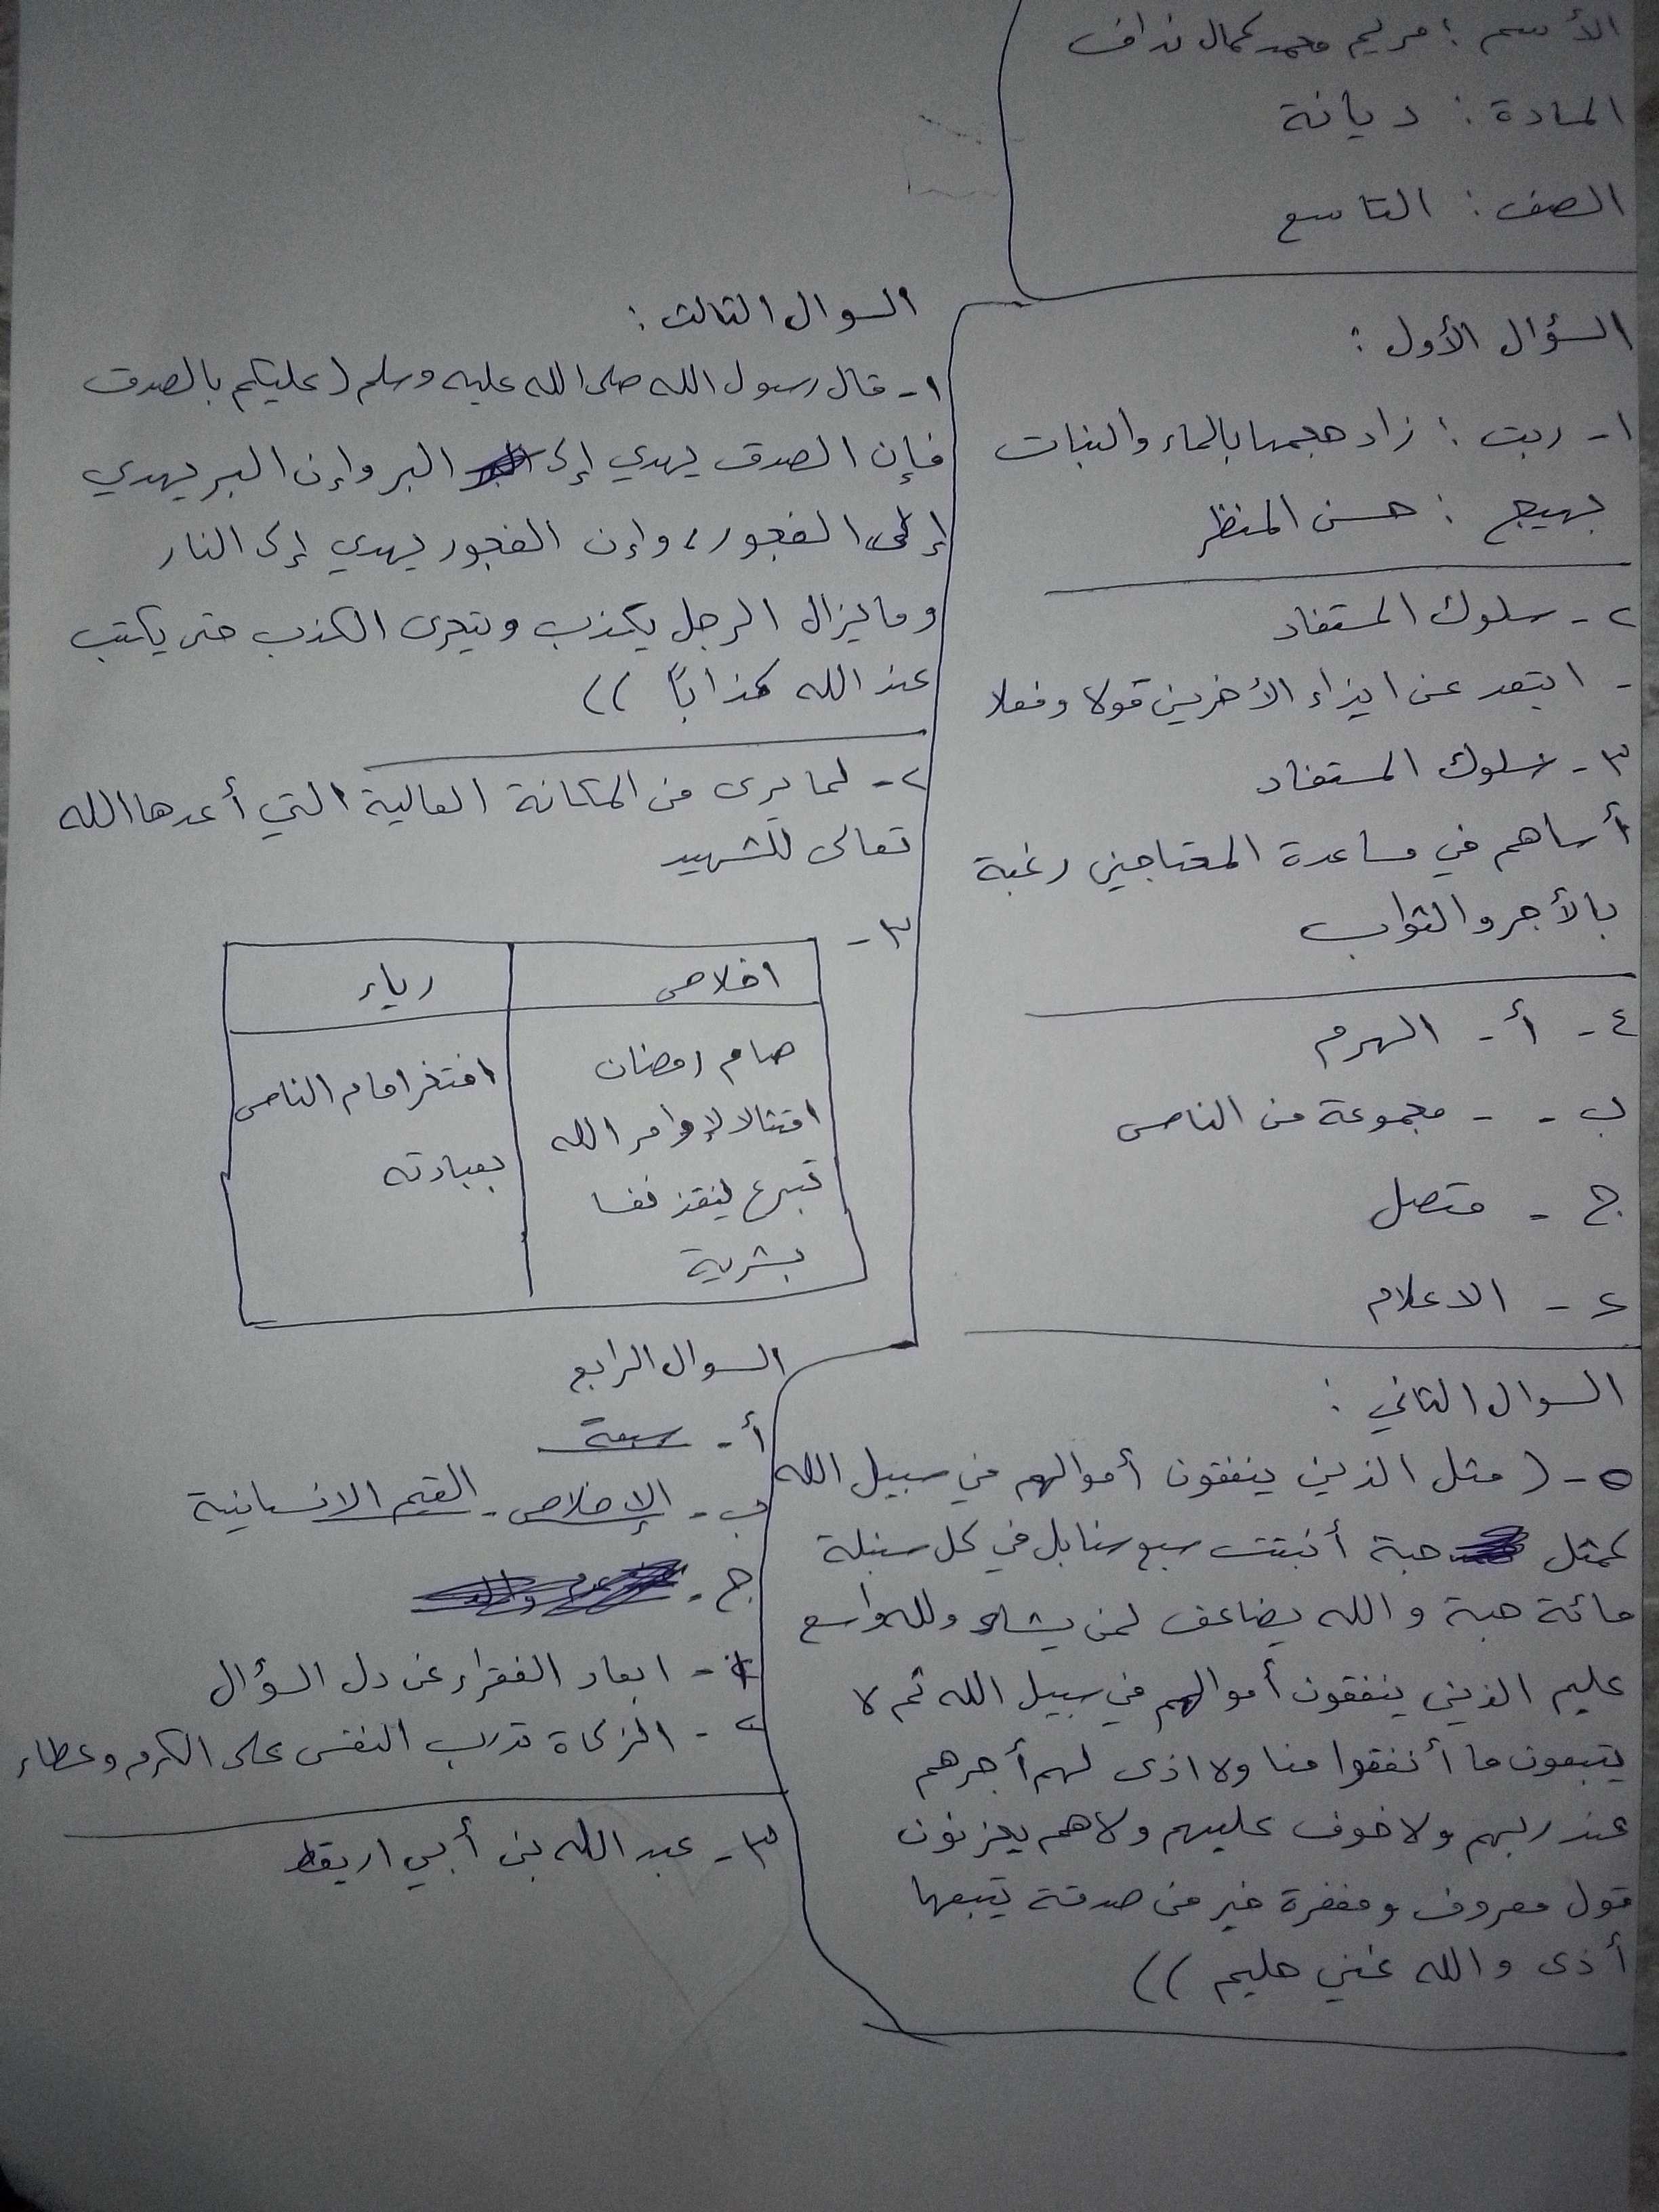 الأسم : مريم محمد كمال نداف
المادة : ديانة
الصف : التاسع
السؤال الأول :
١- ربت : زاد حجمها بالماء والنبات
بهيج : حسن المنظر
٢- سلوك المستفاد
- ابتعد عن ايذاء الأخرين قولا وفعلا
٣- سلوك المستفاد
أساهم في مساعدة المحتاجين رغبة
بالأجر والثواب
٤- أ- الهرم
ب - - مجموعة من الناس
ج - متصل
د - الاعلام
السوال الثاني :
٥- ( مثل الذين ينفقون أموالهم في سبيل الله
كمثل حبة أنبتت سبع سنابل في كل سنبلة
مائة حبة والله يضاعف لمن يشاء والله واسع
عليم الذين ينفقون أموالهم في سبيل الله ثم لا
يتبعون ما أنفقوا منا ولا اذى لهم أجرهم
عند ربهم ولا خوف عليهم ولا هم يحزنون
قول معروف ومغفرة خير من صدقة يتبعها
أذى والله غني حليم ))
السوال الثالث :
١- قال رسول الله صلى الله عليه وسلم ( عليكم بالصدق
فإن الصدق يهدي إلى البر وإن البر يهدي
إلى الفجور ، وإن الفجور يهدي إلى النار
وما يزال الرجل يكذب ويتحرى الكذب حتى يكتب
عند الله كذاباً ))
٢- لما يرى من المكانة العالية التي أعدها الله
تعالى للشهيد
٣-
اخلاص
رياء
صام رمضان
امتثالا لإوامر الله
تبرع لينقذ نفسا
بشرية
افتخر امام الناس
بعبادته
السوال الرابع
أ- سبعة
ب- الإخلاص - القيم الانسانية
ج-
١- ابعاد الفقراء عن ذل السؤال
٢- الزكاة تدرب النفس على الكرم وعطاء
٣- عبد الله بن أبي اريقط